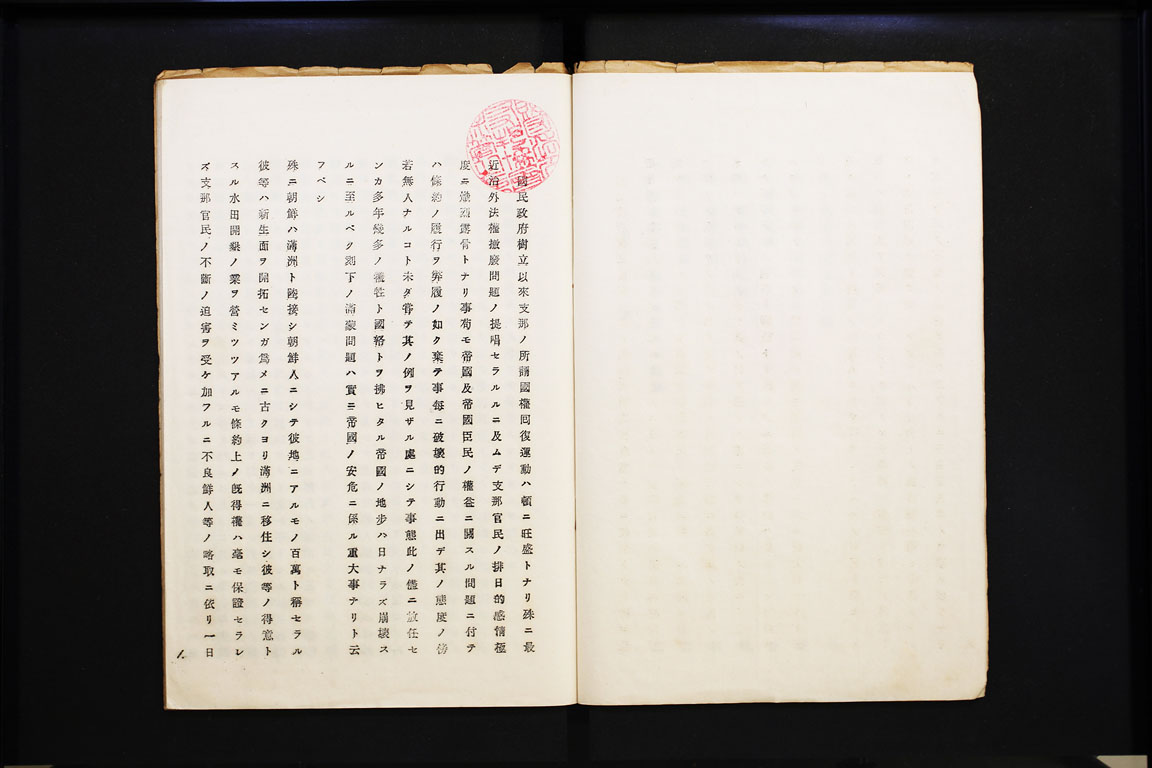 國民政府樹立以來支那ノ所謂國權囘復運動ハ頓ニ旺盛トナリ殊ニ最
近治外法權撤廢問題ノ提唱セラルルニ及ムデ支那官民ノ排日的感情極
度ニ熾烈露骨トナリ事苟モ帝國及帝國臣民ノ權益ニ關スル問題ニ付テ
ハ條約ノ履行ヲ弊履ノ如ク棄テ事每ニ破壞的行動ニ出デ其ノ態度ノ傍
若無人ナルコト未ダ嘗テ其ノ例ヲ見ザル處ニシテ事態此ノ儘ニ放任セ
ンカ多年幾多ノ犧牲ト國帑トヲ拂ヒタル帝國ノ地步ハ日ナラズ崩壞ス
ルニ至ルベク刻下ノ滿蒙問題ハ實ニ帝國ノ安危ニ係ル重大事ナリト云
フベシ
殊ニ朝鮮ハ滿洲ト陸接シ朝鮮人ニシテ彼地ニアルモノ百萬ト稱セラル
彼等ハ新生面ヲ開拓センガ爲メニ古クヨリ滿洲ニ移住シ彼等ノ得意ト
スル水田開墾ノ業ヲ營ミツツアルモ條約上ノ既得權ハ毫モ保證セラレ
ズ支那官民ノ不斷ノ迫害ヲ受ケ加フルニ不良鮮人等ノ略取ニ依リ一日